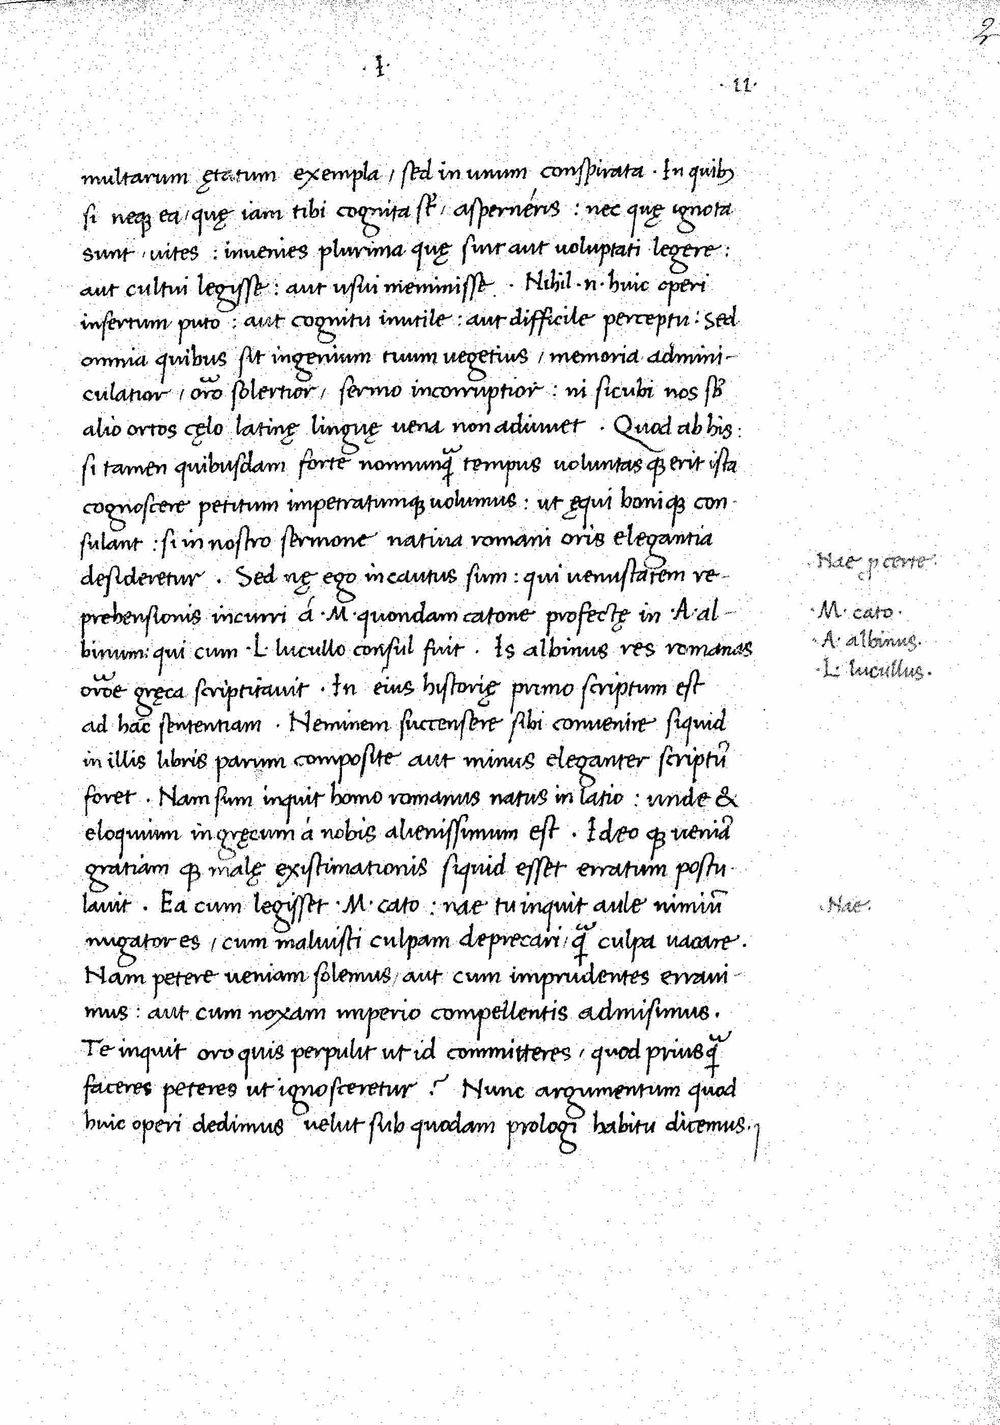 2
·I·
·II·
multarum ętatum exempla / sed in unum conspirata · In quibꝫ
si neqꝫ ea / quę iam tibi cognita st̃ / asperneris : nec quę ignota
sunt / uites : inuenies plurima quę sint aut uoluptati legere :
aut cultui legisse : aut usui meminisse · Nihil ·n· huic operi
insertum puto : aut cognitu inutile : aut difficile perceptu : Sed
omnia quibus sit ingenium tuum uegetius / memoria admini-
culatior / oro̅ solertior / sermo incorruptior : ni sicubi nos sb̃
alio ortos cęlo latinę linguę uena non adiuuet · Quod ab his :
si tamen quibusdam forte nonnunq̃ tempus uoluntasqꝫ erit ista
cognoscere petitum impetratumqꝫ uolumus : ut ęqui boniqꝫ con-
sulant : si in nostro sermone natiua romani oris elegantia
desideretur · Sed nę ego incautus sum : qui uenustatem re-
prehensionis incurri á ·M· quondam catone profectę in ·A· al-
binum : qui cum ·L· lucullo consul fuit · Is albinus res romanas
oro̅e gręca scriptitauit · In eius historię primo scriptum est
ad hac̅ sententiam · Neminem succensere sibi conuenire siquid
in illis libris parum composite aut minus eleganter scriptu̅
foret · Nam sum inquit homo romanus natus in latio : unde &
eloquium in gręcum á nobis alienissimum est · Ideo qꝫ uenia̅
gratiam qꝫ malę ęxistimationis siquid esset erratum postu-
lauit · Ea cum legisset ·M· cato : nae tu inquit aule nimiu̅
nugator es / cum maluisti culpam deprecari / q̃ culpa uacare .
Nam petere ueniam solemus / aut cum imprudentes erraui-
mus : aut cum noxam imperio compellentis admisimus .
Te inquit oro quis perpulit ut id committeres / quod priusq̃
faceres peteres ut ignosceretur ? Nunc argumentum quod
huic operi dedimus uelut sub quodam prologi habitu dicemus .
·Nae ꝓ certe·
·M· cato·
·A· albinus.
·L· lucullus.
·Nae·